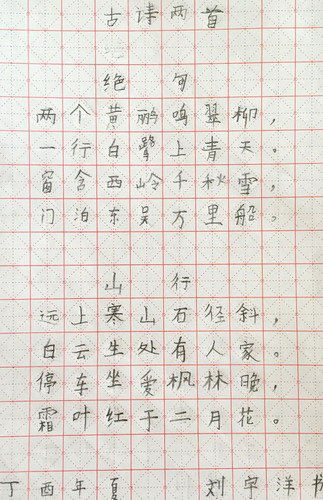 古诗两首
绝句
两个黄鹂鸣翠柳，
一行白鹭上青天。
窗含西岭千秋雪，
门泊东吴万里船。
山行
远上寒山石径斜，
白云生处有人家。
停车坐爱枫林晚，
霜叶红于二月花。
丁酉年夏 刘宇洋书